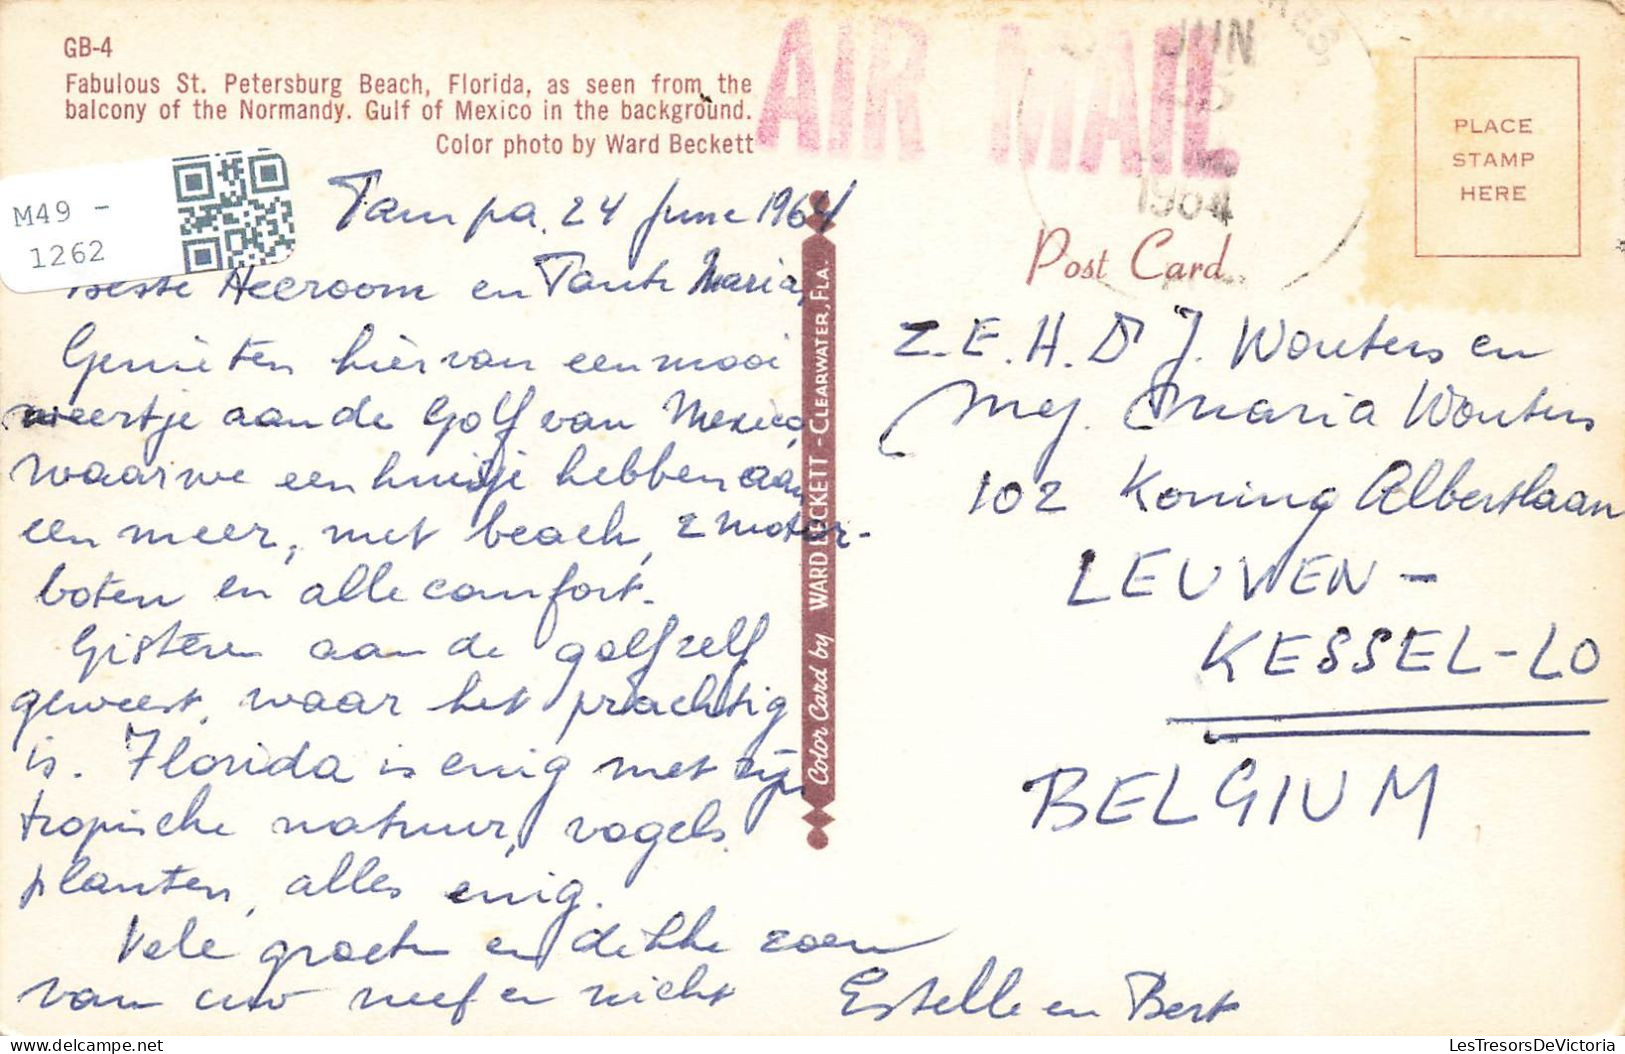 GB-4
Fabulous St. Petersburg Beach, Florida, as seen from the
balcony of the Normandy. Gulf of Mexico in the background.
Color photo by Ward Beckett
AIR MAIL
JUN
1964
PLACE
STAMP
HERE
M49 -
1262
Post Card
Color Card by WARD BECKETT - CLEARWATER, FLA.
Tampa, 24 June 1964
Beste Heeroom en Tante Maria,
Genieten hier van een mooi
weertje aan de Golf van Mexico,
waar we een huisje hebben aan
een meer, met beach, 2 motor-
boten en alle comfort.
Gisteren aan de golf zelf
geweest, waar het prachtig
is. Florida is enig met zijn
tropische natuur, vogels,
planten, alles enig.
Vele groeten en dikke zoen
van uw neef en nicht
Estelle en Bert
Z.E.H. Dr J. Wouters en
Mej. Maria Wouters
102 Koning Albertlaan
LEUVEN -
KESSEL-LO
BELGIUM
LesTresorsDeVictoria
delcampe.net